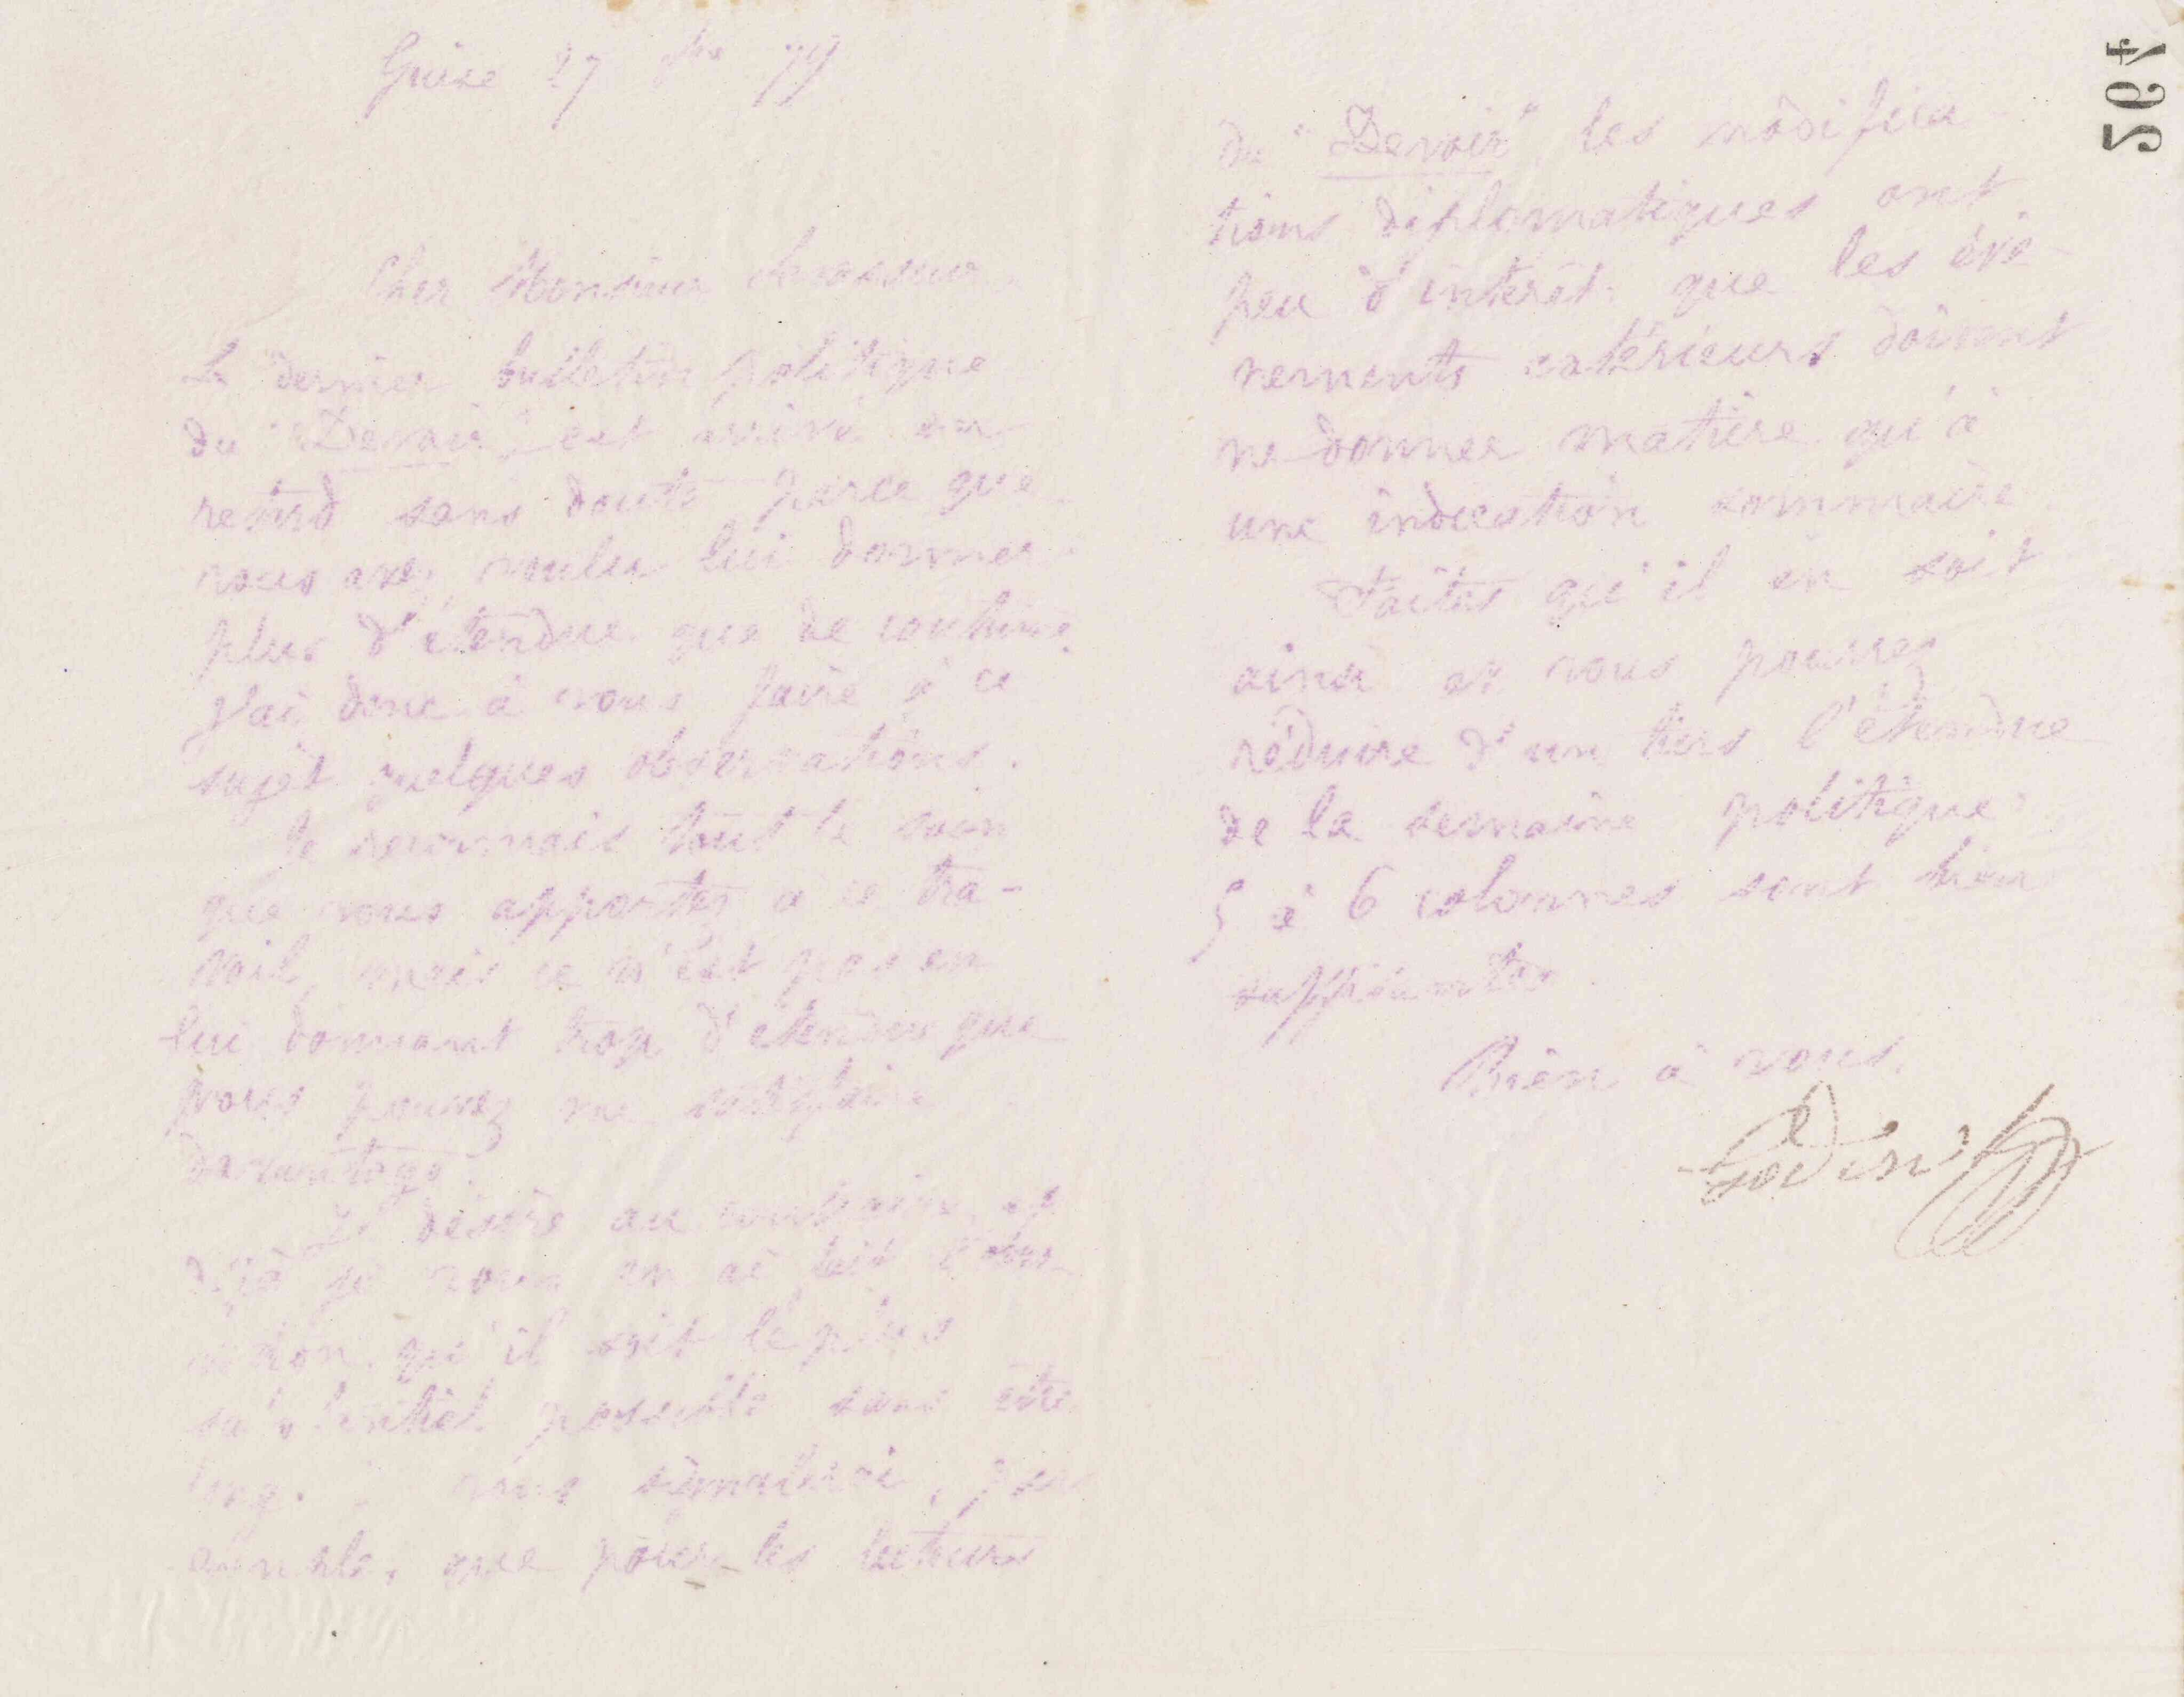 Guise 27 9bre 79
Cher Monsieur
Le dernier bulletin politique
du "Devoir" est arrivé en
retard sans doute parce que
vous avez voulu lui donner
plus d'étendue que de coutume.
J'ai donc à vous faire à ce
sujet quelques observations.
Je reconnais tout le soin
que vous apportez à ce tra-
vail, mais ce n'est pas en
lui donnant trop d'étendue que
vous pouvez me satisfaire
davantage.
Je désire au contraire, et
déjà je vous en ai fait l'obser-
vation, qu'il soit le plus
substantiel possible sans être
long. vous signalerai, par
exemple, que pour les lecteurs
du "Devoir" les modifica
tions diplomatiques ont
peu d'intérêt que les évè-
nements extérieurs doivent
ne donner matière qu'à
une indication sommaire
Faites qu'il en soit
ainsi et vous pourrez
réduire d'un tiers l'étendue
de la semaine politique
5 à 6 colonnes sont bien
suffisantes.
Bien à vous.
Godin